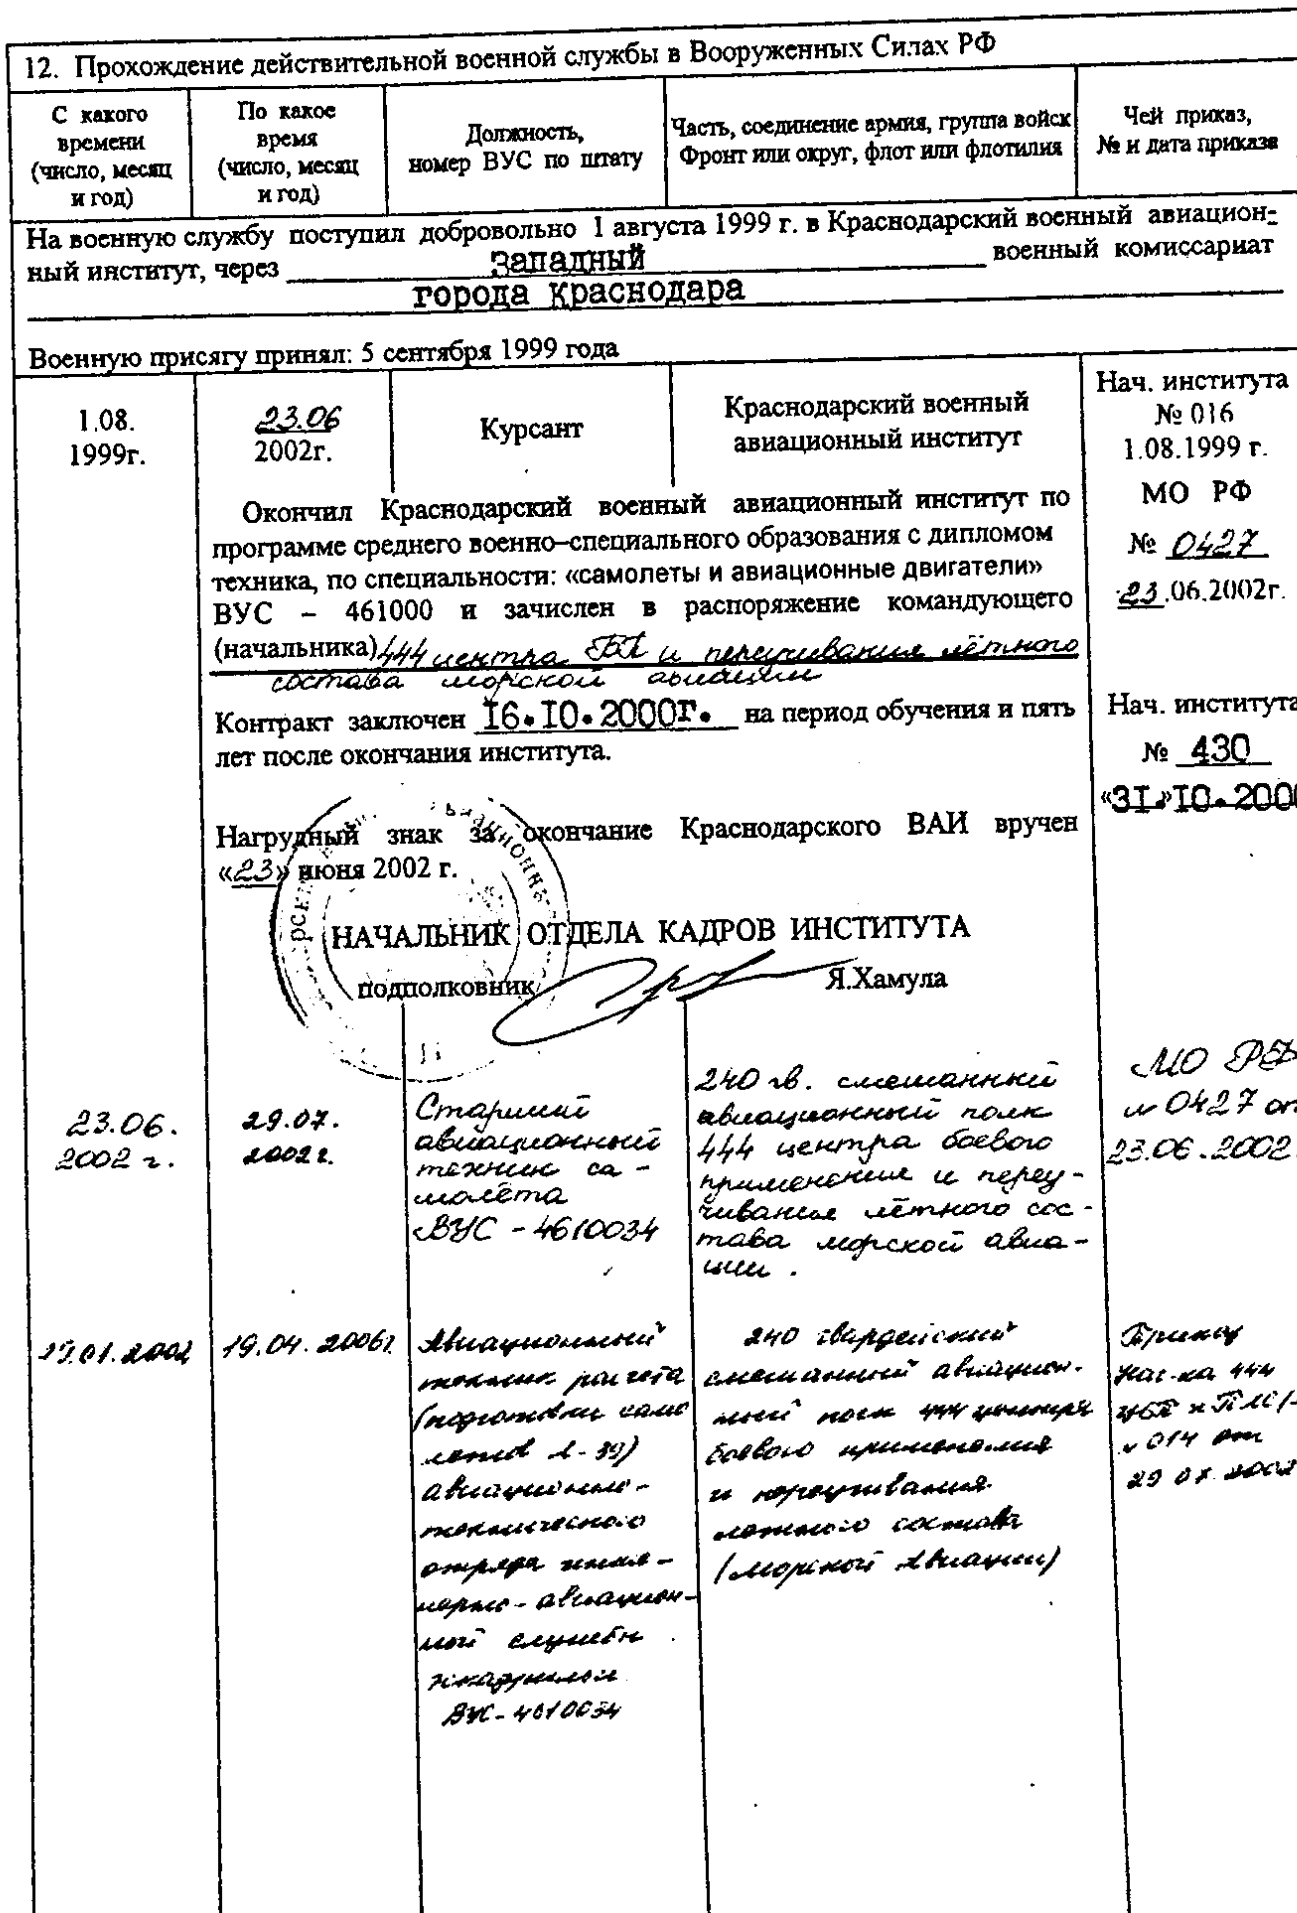 12. Прохождение действительной военной службы в Вооруженных Силах РФ
С какого
времени
(число, месяц
и год)
По какое
время
(число, месяц
и год)
Должность,
номер ВУС по штату
Часть, соединение армия, группа войск
Фронт или округ, флот или флотилия
Чей приказ,
№ и дата приказа
На военную службу поступил добровольно 1 августа 1999 г. в Краснодарский военный авиацион-
ный институт, через западный военный комиссариат
города краснодара
Военную присягу принял: 5 сентября 1999 года
1.08.
1999г.
23.06
2002г.
Курсант
Краснодарский военный
авиационный институт
Нач. института
№ 016
1.08.1999 г.
Окончил Краснодарский военный авиационный институт по
программе среднего военно–специального образования с дипломом
техника, по специальности: «самолеты и авиационные двигатели»
ВУС – 461000 и зачислен в распоряжение командующего
(начальника) 444 центра БП и переучивания лётного
состава морской авиации
МО РФ
№ 0427
23.06.2002г.
Контракт заключен 16.10.2000г. на период обучения и пять
лет после окончания института.
Нач. института
№ 430
«31»10.200
Нагрудный знак за окончание Краснодарского ВАИ вручен
«23» июня 2002 г.
НАЧАЛЬНИК ОТДЕЛА КАДРОВ ИНСТИТУТА
подполковник Я.Хамула
23.06.
2002 г.
29.07.
2002г.
Старший
авиационный
техник са-
молёта
ВУС - 4610034
240 гв. смешанный
авиационный полк
444 центра боевого
применения и переу-
чивания лётного сос-
тава морской авиа-
ции.
МО РФ
№ 0427 от
23.06.2002
19.04.2006г
Авиационный
техник расчета
(подготовки само
летов Л-39)
авиационно-
технического
отряда инже-
нерно-авиацион-
ной службы
эскадрильи
ВУС-4610034
240 гвардейский
смешанный авиацион-
ный полк 444 центра
боевого применения
и переучивания
летного состава
(морской Авиации)
Приказ
Нач-ка 444
ЦБП и ПЛС
№ 014 от
29 07 2002